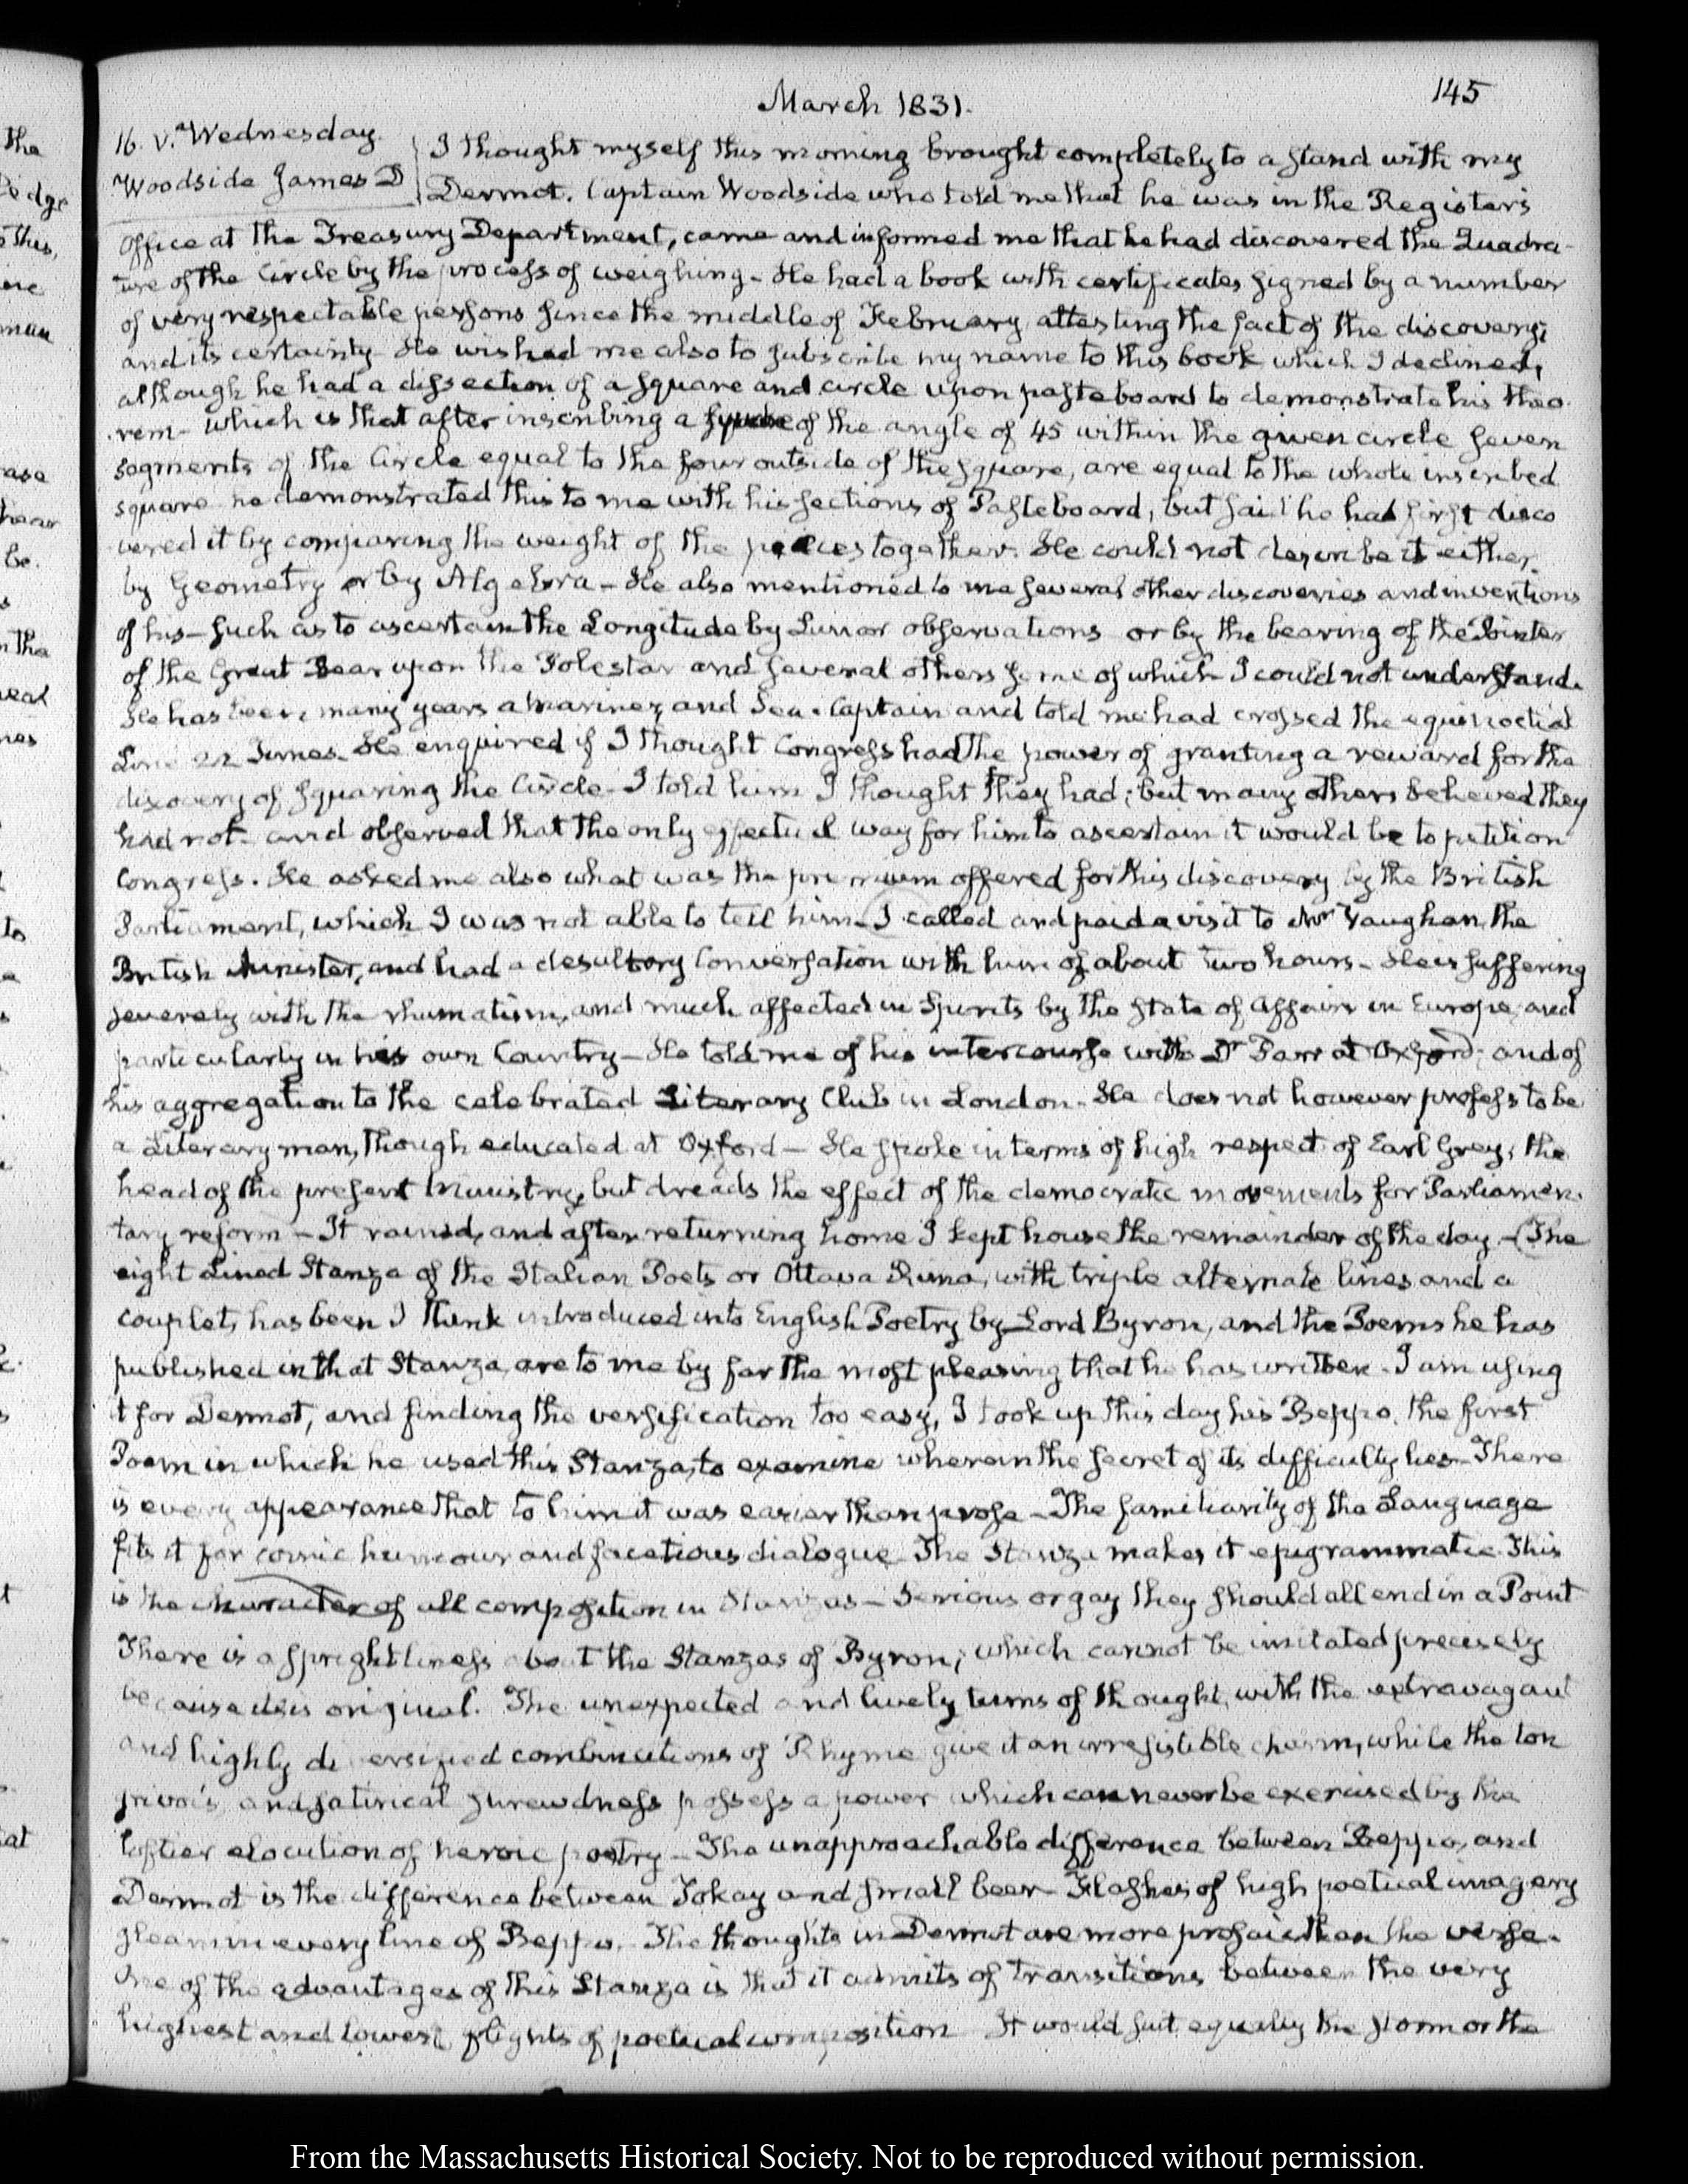 March 1831.
145
16. V. Wednesday.
Woodside James D
I thought myself this morning brought completely to a stand with my
Dermot. Captain Woodside who told me that he was in the Register's
Office at the Treasury Department, came and informed me that he had discovered the Quadra-
ture of the Circle by the process of weighing. He had a book with certificates signed by a number
of very respectable persons since the middle of February, attesting the fact of the discovery;
and its certainty. He wished me also to subscribe my name to this book which I declined,
although he had a dissection of a square and circle upon pasteboard to demonstrate his theo-
rem. which is that after inscribing a square of the angle of 45 within the given circle seven
segments of the Circle equal to the four outside of the square, are equal to the whole inscribed
square he demonstrated this to me with his sections of Pasteboard, but said he had first disco
vered it by comparing the weight of the pieces together. He could not describe it either
by Geometry or by Algebra - He also mentioned to me several other discoveries and inventions
of his - such as to ascertain the Longitude by Lunar observations or by the bearing of the Pointer
of the Great Bear upon the Polestar and several others some of which I could not understand.
He has been many years a mariner, and Sea-Captain and told me had crossed the equinoctial
Line 22 Times. He enquired if I thought Congress had the power of granting a reward for the
discovery of squaring the Circle. I told him I thought they had; but many others believed they
had not. and observed that the only effectual way for him to ascertain it would be to petition
Congress. He asked me also what was the premium offered for this discovery by the British
Parliament, which I was not able to tell him. I called and paid a visit to Mr Vaughan the
British Minister, and had a desultory Conversation with him of about two hours - He is suffering
severely with the rhumatism, and much affected in Spirits by the state of affairs in Europe, and
particularly in his own Country - He told me of his intercourse with Dr Parr at Oxford; and of
his aggregation to the celebrated Literary Club in London. He does not however profess to be
a Literary man, though educated at Oxford - He spoke in terms of high respect of Earl Grey, the
head of the present Ministry, but dreads the effect of the democratic movements for Parliamen-
tary reform - It rained, and after returning home I kept house the remainder of the day. - (The
eight Lined Stanza of the Italian Poets or Ottava Rima, with triple alternate lines and a
couplet, has been I think introduced into English Poetry by Lord Byron, and the Poems he has
published in that Stanza, are to me by far the most pleasing that he has written. I am using
it for Dermot, and finding the versification too easy, I took up this day his Beppo, the first
Poem in which he used this Stanza, to examine wherein the secret of its difficulty lies - There
is every appearance that to him it was easier than prose - The familiarity of the Language
fits it for comic humour and facetious dialogue. The Stanza makes it epigrammatic. This
is the character of all composition in Stanzas - Serious or gay they should all end in a Point
There is a sprightliness about the Stanzas of Byron, which cannot be imitated precisely
because it is original. The unexpected and lively turns of thought, with the extravagant
and highly diversified combinations of Rhyme give it an irresistible charm, while the ton
grivois and satirical shrewdness possess a power which can never be exercised by the
loftier elocution of heroic poetry - The unapproachable difference between Beppo, and
Dermot is the difference between Tokay and small beer - Flashes of high poetical imagery
gleam in every line of Beppo. The thoughts in Dermot are more prosaic than the verse.
One of the advantages of this Stanza is that it admits of transitions between the very
highest and lowest flights of poetical composition It would suit equally the or the
From the Massachusetts Historical Society. Not to be reproduced without permission.